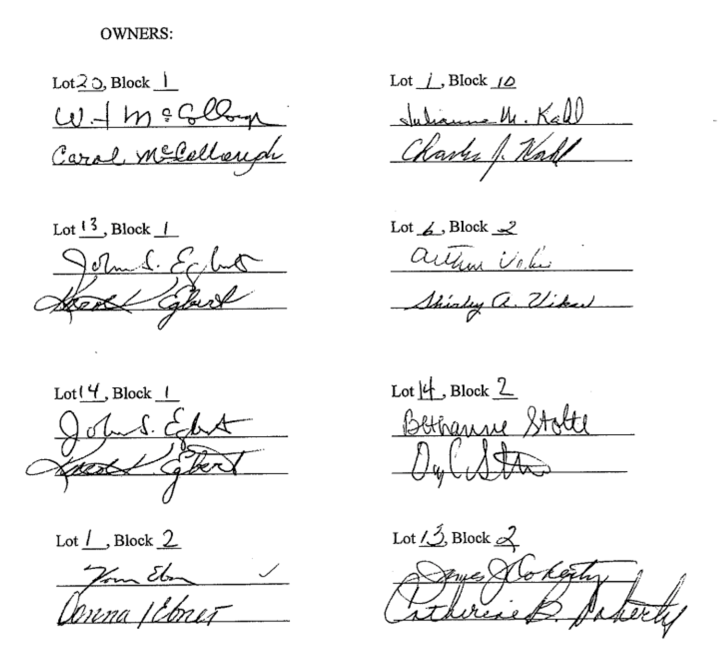 OWNERS:
Lot 20, Block 1
W. H McCollough
Carol McCollough
Lot 13, Block 1
John S. Egbert
Karen K Egbert
Lot 14, Block 1
John S. Egbert
Karen K. Egbert
Lot 1, Block 2
Tom Ebner
Donna Ebner
Lot 1, Block 10
Julianne M. Kahl
Charles J. Kahl
Lot 6, Block 2
Arthur
Shirley A.
Lot 14, Block 2
Bethanne Stolte
Lot 13, Block 2
James J Doherty
Catherine B. Doherty